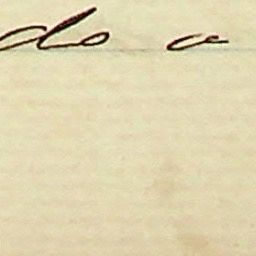 do a